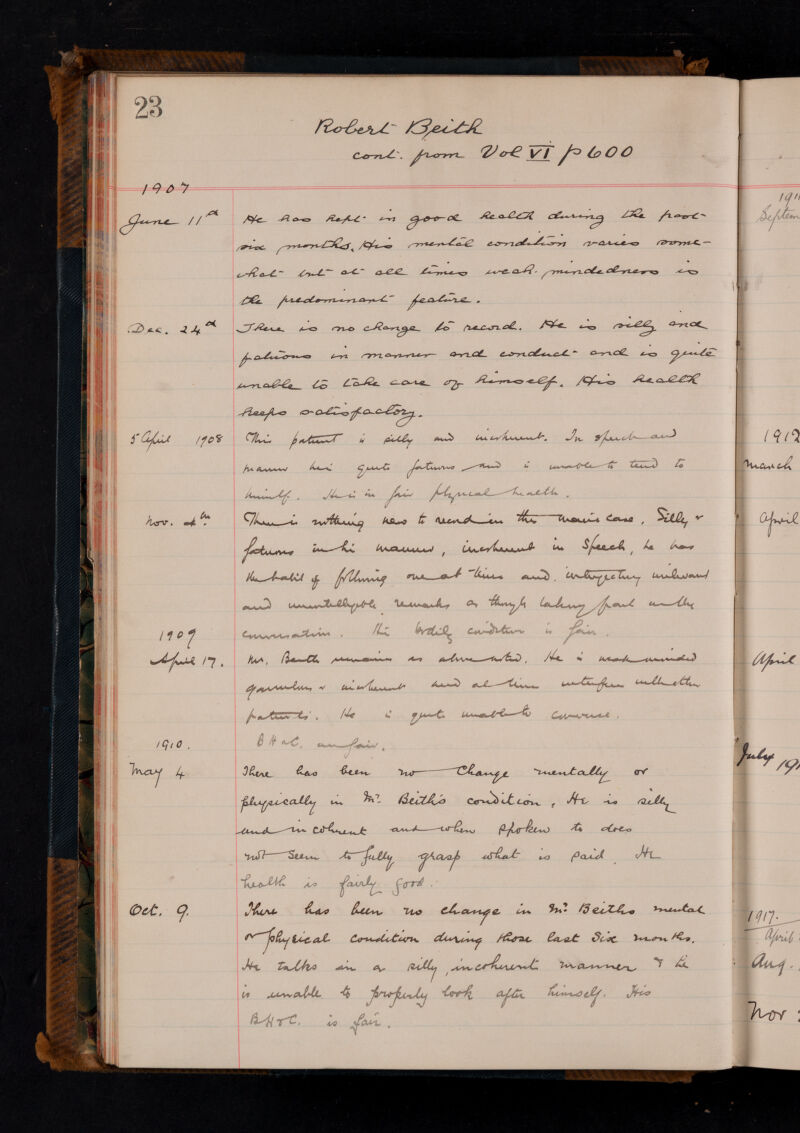 23
Robert Beith
cont. from Vol VI p 600
1907
June 11th He has kept in good health during the past
six months. His mental condition varies some-
what but at all times weak-mindedness is
the predominant feature.
Dec. 24th There is no change to record. He is silly and
fatuous in manner and conduct and is quite
unable to take care of himself. His health
keeps satisfactory.
5 April 1908 This patient is silly and incoherent. In speech and
manner he is quite fatuous and is unable to tend to
himself. He is in fair physical health.
Nov. 4th There is nothing new to record in this man's case. Silly &
fatuous in his manner, incoherent in speech, he has
the habit of following one at times and interjecting irrelevant
and unintelligible remarks as though taking part in the
conversation. His bodily condition is fair.
1909
April 17. Mr. Beith remains as above noted. He is weak minded
garrulous & incoherent and at times interferes with other
patients. He is quite unable to converse.
B H & C. are fair.
1910.
May 4 There has been no change mentally or
physically in Mr. Beith's condition. He is silly
and incoherent and when spoken to does
not seem to fully grasp what is said. His
health is fairly good.
Oct. 9. There has been no change in Mr. Beiths mental
or physical condition during those last six months.
He talks in a silly, incoherent manner & he
is unable to properly look after himself. His
B H & C. is fair.
191
Septem
1912
March
April
April
July 191
1917.
April
Aug.
Nov